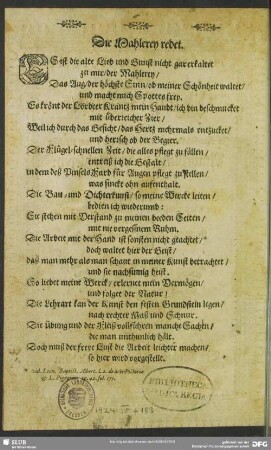 Die Mahlerey redet.
Es ist die alte Lieb und Gunst nicht gar erkaltet
zu mir / der Mahlerey /
Das Aug / der höchste Sinn / ob meiner Schönheit waltet /
und macht mich Spottes frey.
So krönt der Lorbeer Krantz mein Haubt / ich bin beschmucket
mit überreicher Zier /
Weil ich durch das Gesicht / das Hertz mehrmals entzucket /
und hersch ob der Begier.
Der Flügel-schnellen Zeit / die alles pflegt zu fällen /
entreiß ich die Gestalt /
in dem deß Pinsels Farb für Augen pflegt zu stellen /
was sinckt ohn aufenthalt.
Die Bau- und Dichtkunst / so meine Wercke leiten /
bedien ich wiederumb:
Sie stehen mit Verstand zu meinen beeden Seiten /
mit nie vergessnem Ruhm.
Die Arbeit mit der Hand ist sonsten nicht geachtet / *
doch waltet hier der Geist /
daß man mehr als man schaut in meiner Kunst betrachtet /
und sie nachsinnig heist.
So liebet meine Werck / erlernet mein Vermögen /
und folget der Natur!
Die Lehrart kan der Kunst den festen Grundstein legen /
nach rechter Maß und Schnur.
Die übung und der Fleiß vollführen manche Sachen /
die man unthunlich hält.
Doch muß der freye Lust die Arbeit leichter machen /
so hier wird vorgestellt.
vid. Leon. Baptist. Albert. l. 2. de la Pictura
BIBLIOTHECA
REGIA